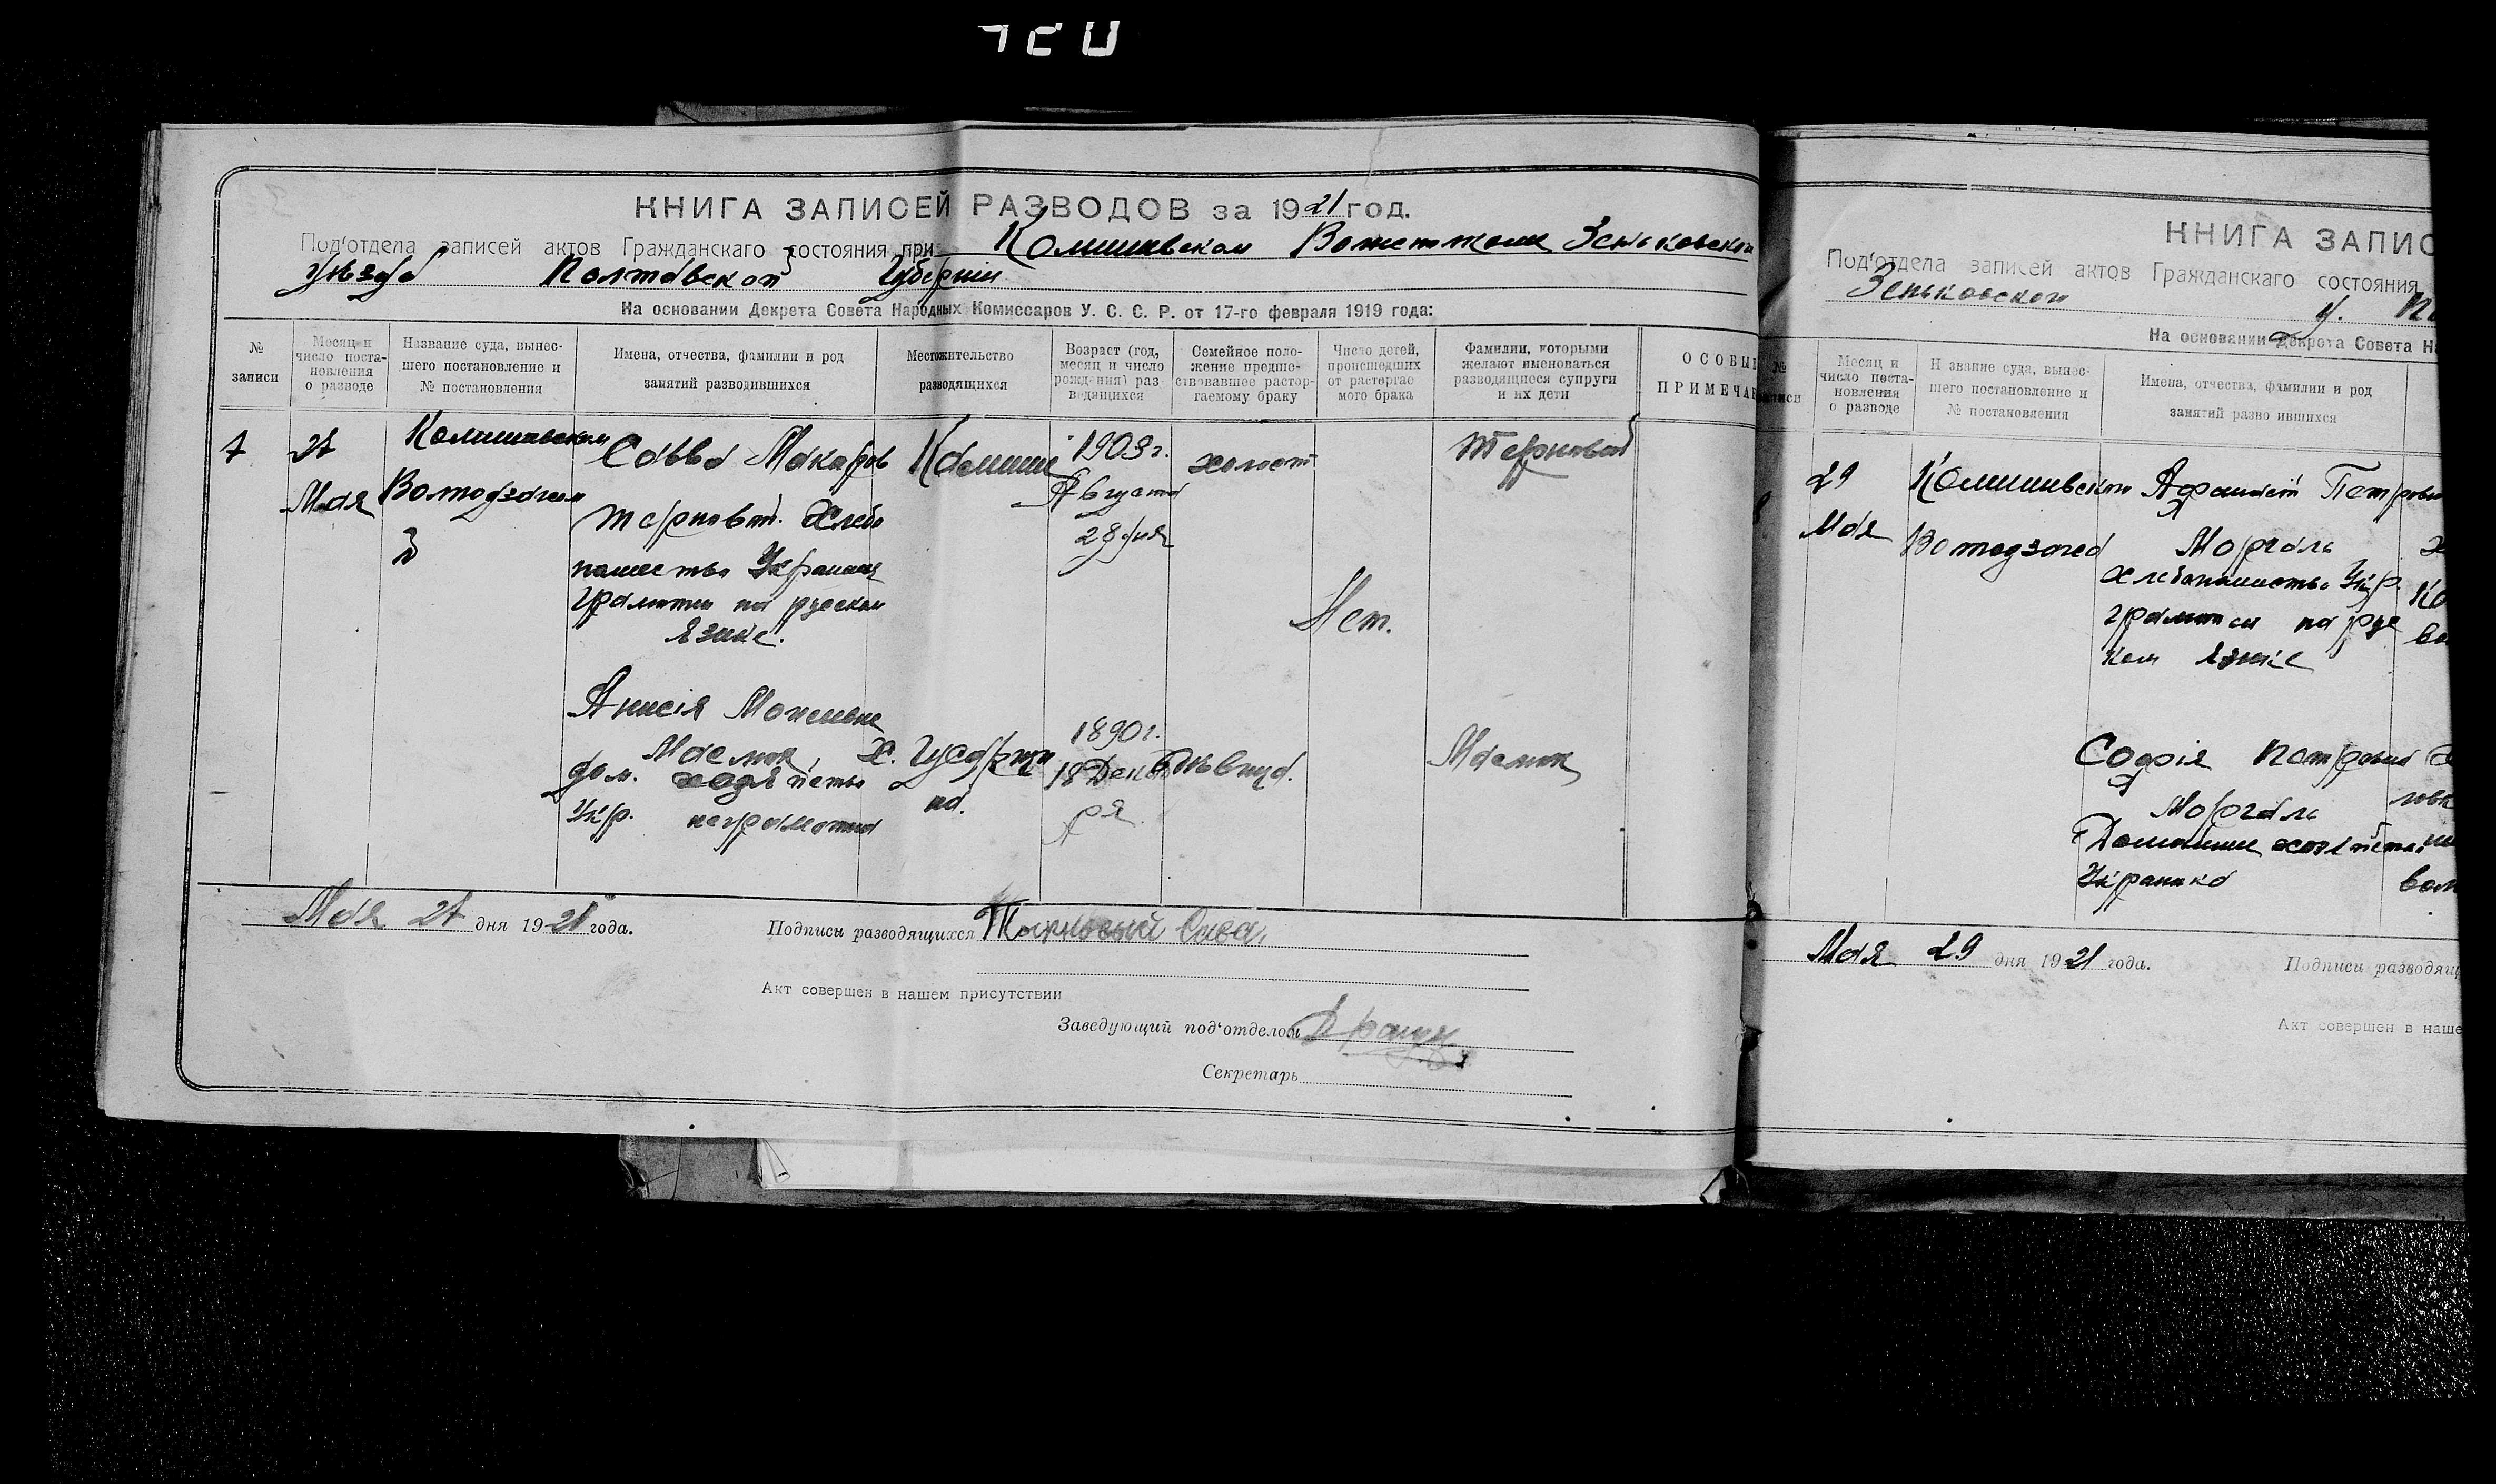 КНИГА ЗАПИСЕЙ РАЗВОДОВ за 1921 год.
Под'отдела записей актов Гражданскаго состояния при Комишивском Зеньковской
уѣзда Полтавской Губернии
На основании Декрета Совета Народных Комиссаров У. С. С. Р. от 17-го февраля 1919 года:
№ записи
Месяц и число поста-новления о разводе
Название суда, вынес-шего постановление и № постановления
Имена, отчества, фамилии и род занятий разводившихся
Местожительство разводящихся
Возраст (год, месяц и число рождения) раз водящихся
Семейное поло-жение предше-ствовавшее растор-гаемому браку
Число детей, происшедших от расторгае мого брака
Фамилии, которыми желают именоваться разводящиеся супруги и их дети
ОСОБЫ
ПРИМЕЧА
7
27
Мая
Савва Макаров
Терновой. Хлебо
пашество Украинец
грамотен на руском
языке.
1903 г.
Августа
28 дня
холост
Нет.
Терновой
Анисія
дом. хозяйство
Укр. неграмотна
1890 г.
18 Декаб
ря
дѣвица.
Мая 27 дня 1921 года.
Подписы разводящихся Терновый Сава
Акт совершен в нашем присутствии
Заведующий под'отделом
Секретарь
КНИГА ЗАПИС
Под'отдела записей актов Гражданскаго состояния
Зеньковской у.
На основании Декрета Совета Н
Месяц и число поста-новления о разводе
Н звание суда, вынес-шего постановление и № постановления
Имена, отчества, фамилии и род занятий разво ившихся
29
Мая
Петров
Моргаль
хлебопашество Укр.
грамотен на рус
ком языке
Софія Петровна
Моргаль
Домашнее хозяйство
Украинка
Мая 29 дня 1921 года.
Подписи разводящ
Акт совершен в наше